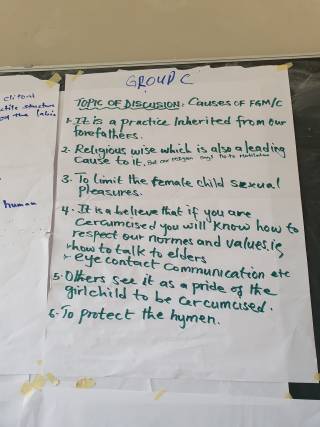 clitori
tile structure
ng the labia
human
GROUP C
TOPIC OF DISCUSION: CAUSES OF FGM/C
1. It is a practice Inherited from our
forefathers.
2. Religious wise which is also a leading
cause to it, But our religion says No to Mutilation
3. To limit the female child sexual
pleasures.
4. It is a believe that if you are
cercumcised you will know how to
respect our normes and values. ie
how to talk to elders
eye contact communication etc
5. Others see it as a pride of the
girlchild to be cercumcised.
6. To protect the hymen.